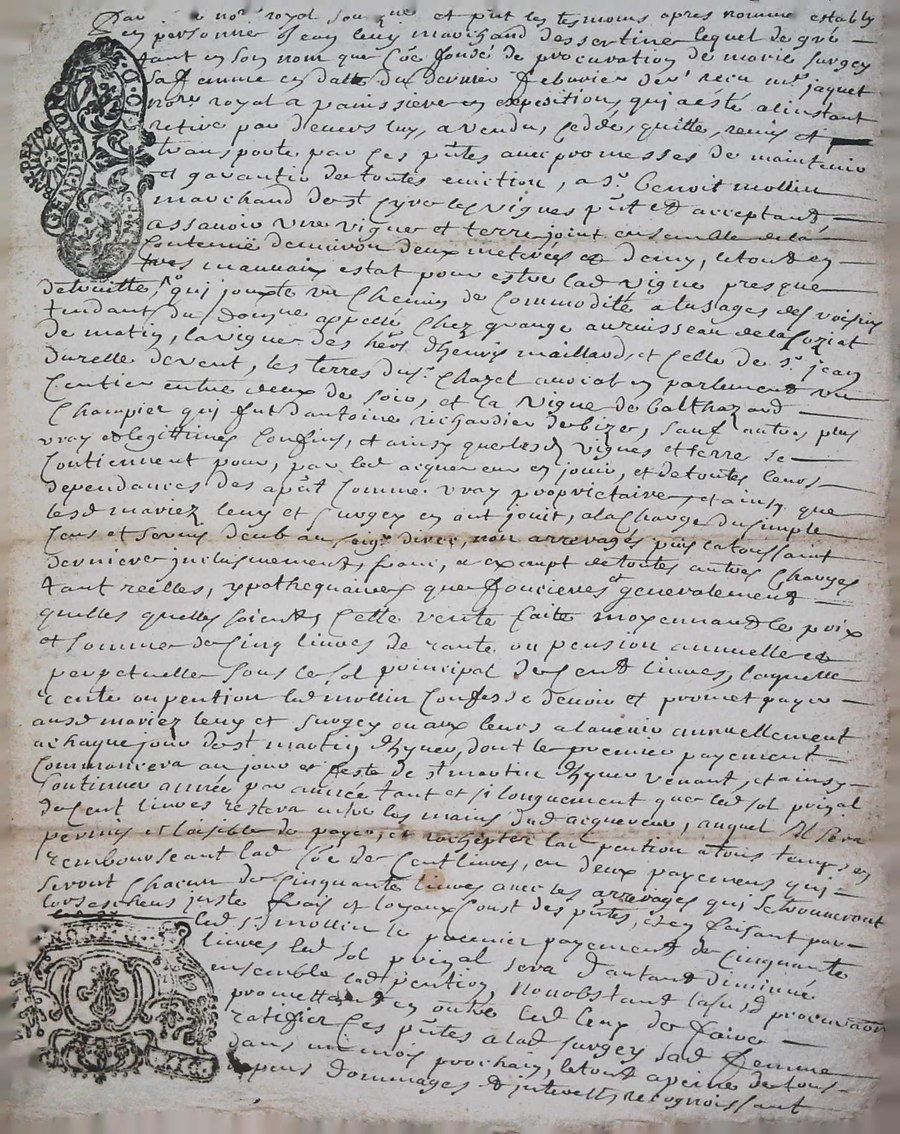 Par le not.re royal sou.gne et pnt les tesmoins apres nommé estably
en personne Jean leuy marchand dessertine lequel de gré
tant en son nom que Coe fondé de procuration de marie surgey
sa femme en datte du dernier febvrier der.r receu m.e jaquet
not.re royal a panissiere en expedition, qui a esté a linstant
retiré par devers luy, a vendu, cedde, quitte, remis et
transporté par ces pntes avec promesses de maintenir
et garantir de toutes eviction, a s.r Benoit mollin
marchand de st Cyre les vignes pnt et acceptant
assavoir une vigne et terre joint ensemble de la
Contenue denviron deux meterées et demy, le tout en
tres mauvaix estat pour estre lad vigne presque
detruitte, qui jouxte un Chemin de Commodité a lusages des voisins
tendant du domaine appellé Chez grange au ruisseau de la
de matin, la vigne des hers dhenry maillard, et Celle de s.r jean
durelle de vent, les terres du s.r Chazel avocat en parlement un
sentier entre deux de soir, et la vigne de Balthazard
Champier qui fut dantoine richardier de bize, sauf autres plus
vray et legittimes Confins, et ainsy que lesd vignes et terre se
Contiennent pour, par led acquereur en jouir, et de toutes leurs
dependances des apnt Comme vray proprietaire, et ainsy que
lesd mariez leuy et surgey en ont jouit, a la Charge du simple
Cens et servis deub au seig.r direc, non arreragés puis la toussaint
derniere inclusivement, franc, et exempt de toutes autres Charges
tant reelles, ypothequaires que foncieres et generalement
quelles quelles soient, Cette vente faite moyennant le prix
et somme de Cinq livres de rante ou pension annuelle et
perpetuelle sous le sol principal de Cent livres, laquelle
rente ou pention led mollin Confesse devoir et promet payer
ausd mariez leuy et surgey ou aux leurs a lavenir annuellement
a chaque jour de st martin dhyver, dont le premier payement
Commancera au jour et feste de st martin dhyver venant, et ainsy
Continuer année par année tant et si longuement que led sol prinpal
de Cent livres restera entre les mains dud acquereur, auquel Il sera
permis et loisible de payer, et rachepter lad pention a tous temps en
rembourseant lad soe de Cent livres, en deux payemens qui
seront Chacun de Cinquante livres avec les arrérages qui se trouveront
lors escheus juste frais et loyaux Coust des pntes, et en faisant par
led s.r mollin le premier payement de Cinquante
livres led sol prinpal sera dautant diminué
ensemble lad pention, Nonobstant lasusd procuration
promettant en outre led leuy de faire
ratifier ces pntes a lad surgey sad femme
dans un mois prochain, le tout a peine de tous
despens dommages et interests, recognoissant